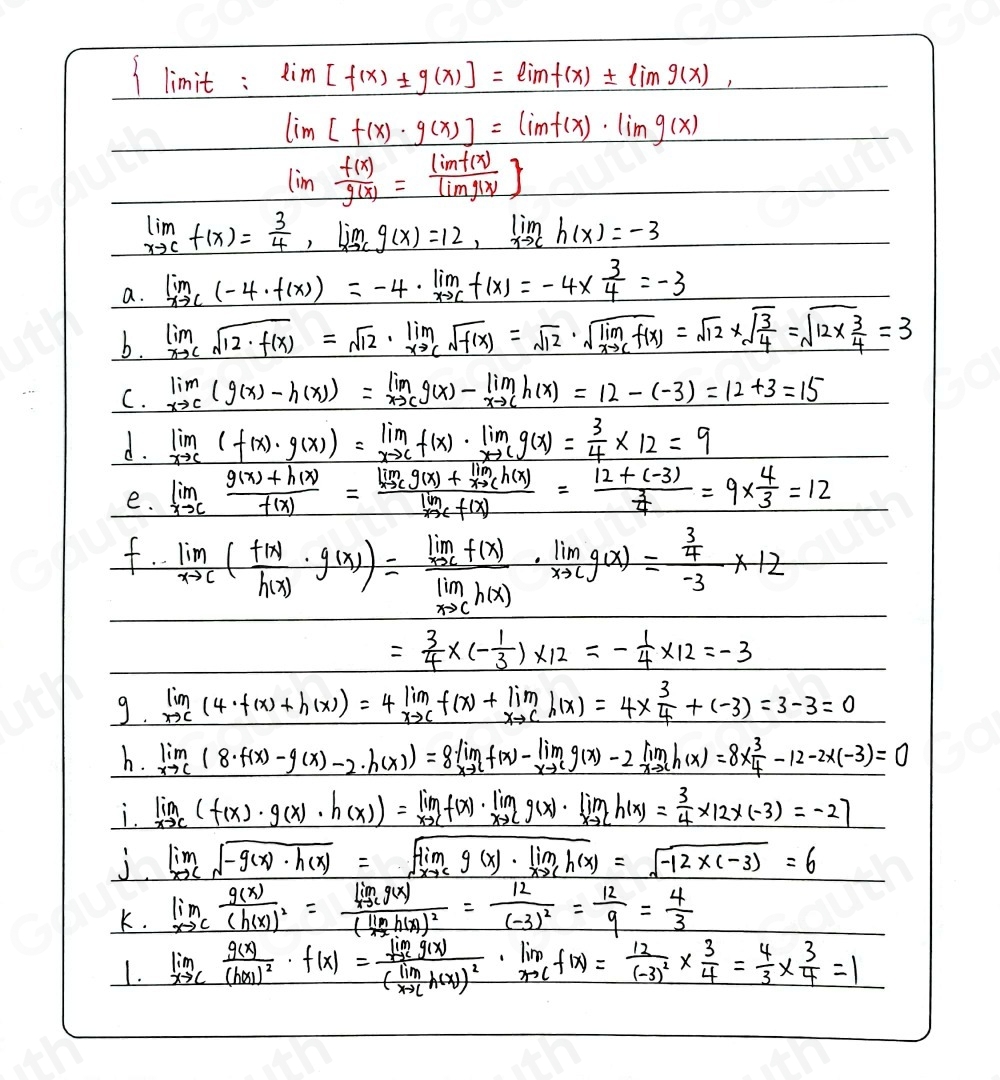 { limit : lim [ f(x) ± g(x) ] = lim f(x) ± lim g(x) ,
lim [ f(x) · g(x) ] = lim f(x) · lim g(x)
lim f(x)/g(x) = lim f(x)/lim g(x) }
lim x→c f(x) = 3/4 , lim x→c g(x) = 12 , lim x→c h(x) = -3
a. lim x→c (-4 · f(x)) = -4 · lim x→c f(x) = -4 × 3/4 = -3
b. lim x→c √(12 · f(x)) = √12 · lim x→c √f(x) = √12 · √(lim x→c f(x)) = √12 × √(3/4) = √(12 × 3/4) = 3
c. lim x→c (g(x) - h(x)) = lim x→c g(x) - lim x→c h(x) = 12 - (-3) = 12 + 3 = 15
d. lim x→c (f(x) · g(x)) = lim x→c f(x) · lim x→c g(x) = 3/4 × 12 = 9
e. lim x→c (g(x) + h(x))/f(x) = (lim x→c g(x) + lim x→c h(x))/(lim x→c f(x)) = (12 + (-3))/(3/4) = 9 × 4/3 = 12
f. lim x→c (f(x)/h(x) · g(x)) = (lim x→c f(x))/(lim x→c h(x)) · lim x→c g(x) = (3/4)/(-3) × 12
= 3/4 × (-1/3) × 12 = -1/4 × 12 = -3
g. lim x→c (4 · f(x) + h(x)) = 4 lim x→c f(x) + lim x→c h(x) = 4 × 3/4 + (-3) = 3 - 3 = 0
h. lim x→c (8 · f(x) - g(x) - 2 · h(x)) = 8 lim x→c f(x) - lim x→c g(x) - 2 lim x→c h(x) = 8 × 3/4 - 12 - 2 × (-3) = 0
i. lim x→c (f(x) · g(x) · h(x)) = lim x→c f(x) · lim x→c g(x) · lim x→c h(x) = 3/4 × 12 × (-3) = -27
j. lim x→c √(-g(x) · h(x)) = √(-lim x→c g(x) · lim x→c h(x)) = √(-12 × (-3)) = 6
k. lim x→c g(x)/(h(x))² = (lim x→c g(x))/(lim x→c h(x))² = 12/(-3)² = 12/9 = 4/3
l. lim x→c g(x)/(h(x))² · f(x) = (lim x→c g(x))/(lim x→c h(x))² · lim x→c f(x) = 12/(-3)² × 3/4 = 4/3 × 3/4 = 1
Gauth